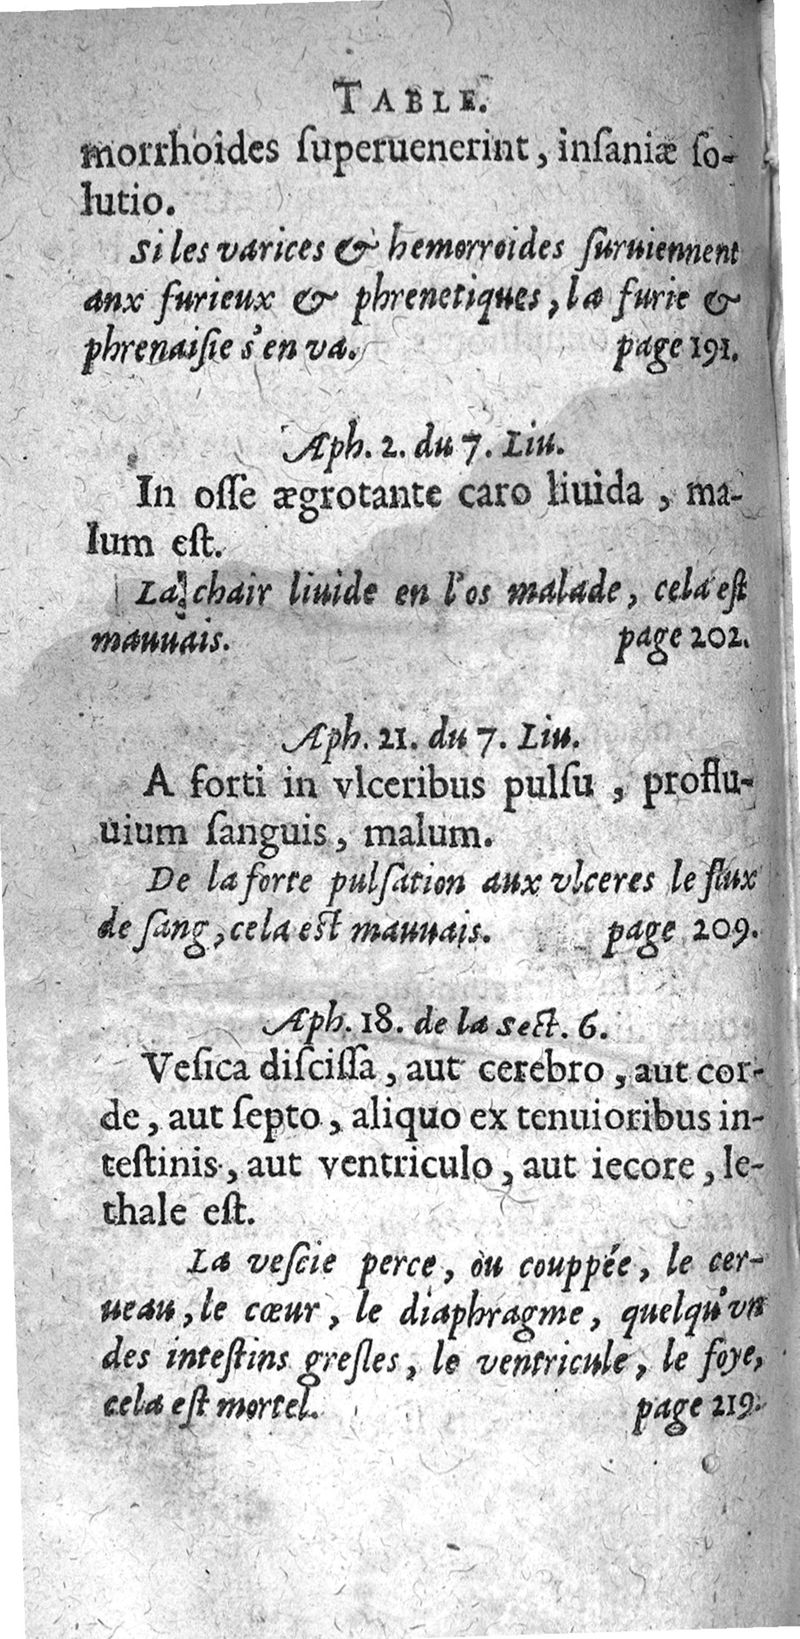 TABLE.
morrhoides ſuperuenerint, inſaniæ ſo-
lutio.
Si les varices & hemorroides ſuruiennent
anx furieux & phrenetiques, la furie &
phrenaiſie s'en va. page 191.
Aph. 2. du 7. Liu.
In oſſe ægrotante caro liuida, ma-
lum eſt.
La chair liuide en l'os malade, cela eſt
mauuais. page 202.
Aph. 21. du 7. Liu.
A forti in vlceribus pulſu, proflu-
uium ſanguis, malum.
De la forte pulſation aux vlceres le flux
de ſang, cela est mauuais. page 209.
Aph. 18. de la sect. 6.
Veſica diſciſſa, aut cerebro, aut cor-
de, aut ſepto, aliquo ex tenuioribus in-
teſtinis, aut ventriculo, aut iecore, le-
thale eſt.
La veſcie perce, ou couppée, le cer-
ueau, le cœur, le diaphragme, quelqu'vn
des inteſtins greſles, le ventricule, le foye,
cela eſt mortel. page 219.